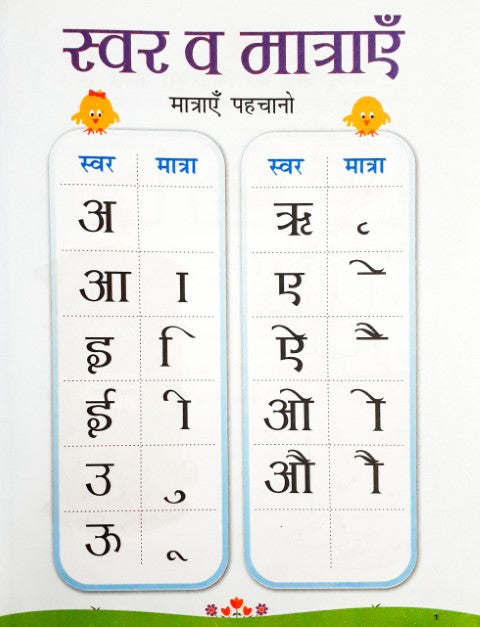 स्वर व मात्राएँ
मात्राएँ पहचानो
स्वर मात्रा
अ
आ ा
इ ि
ई ी
उ ु
ऊ ू
स्वर मात्रा
ऋ ृ
ए े
ऐ ै
ओ ो
औ ौ
1